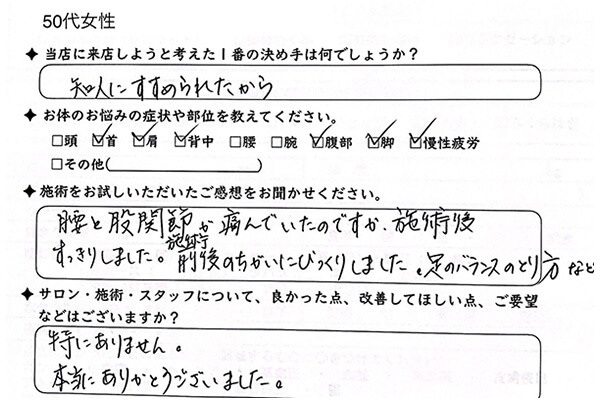 50代女性
✦ 当店に来店しようと考えた1番の決め手は何でしょうか？
知人にすすめられたから
✦ お体のお悩みの症状や部位を教えてください。
□頭 ☑首 ☑肩 ☑背中 □腰 □腕 ☑腹部 ☑脚 ☑慢性疲労
□その他( )
✦ 施術をお試しいただいたご感想をお聞かせください。
腰と股関節が痛んでいたのですが、施術後
すっきりしました。施術前後のちがいにびっくりしました。足のバランスのとり方など
✦ サロン・施術・スタッフについて、良かった点、改善してほしい点、ご要望
などはございますか？
特にありません。
本当にありがとうございました。